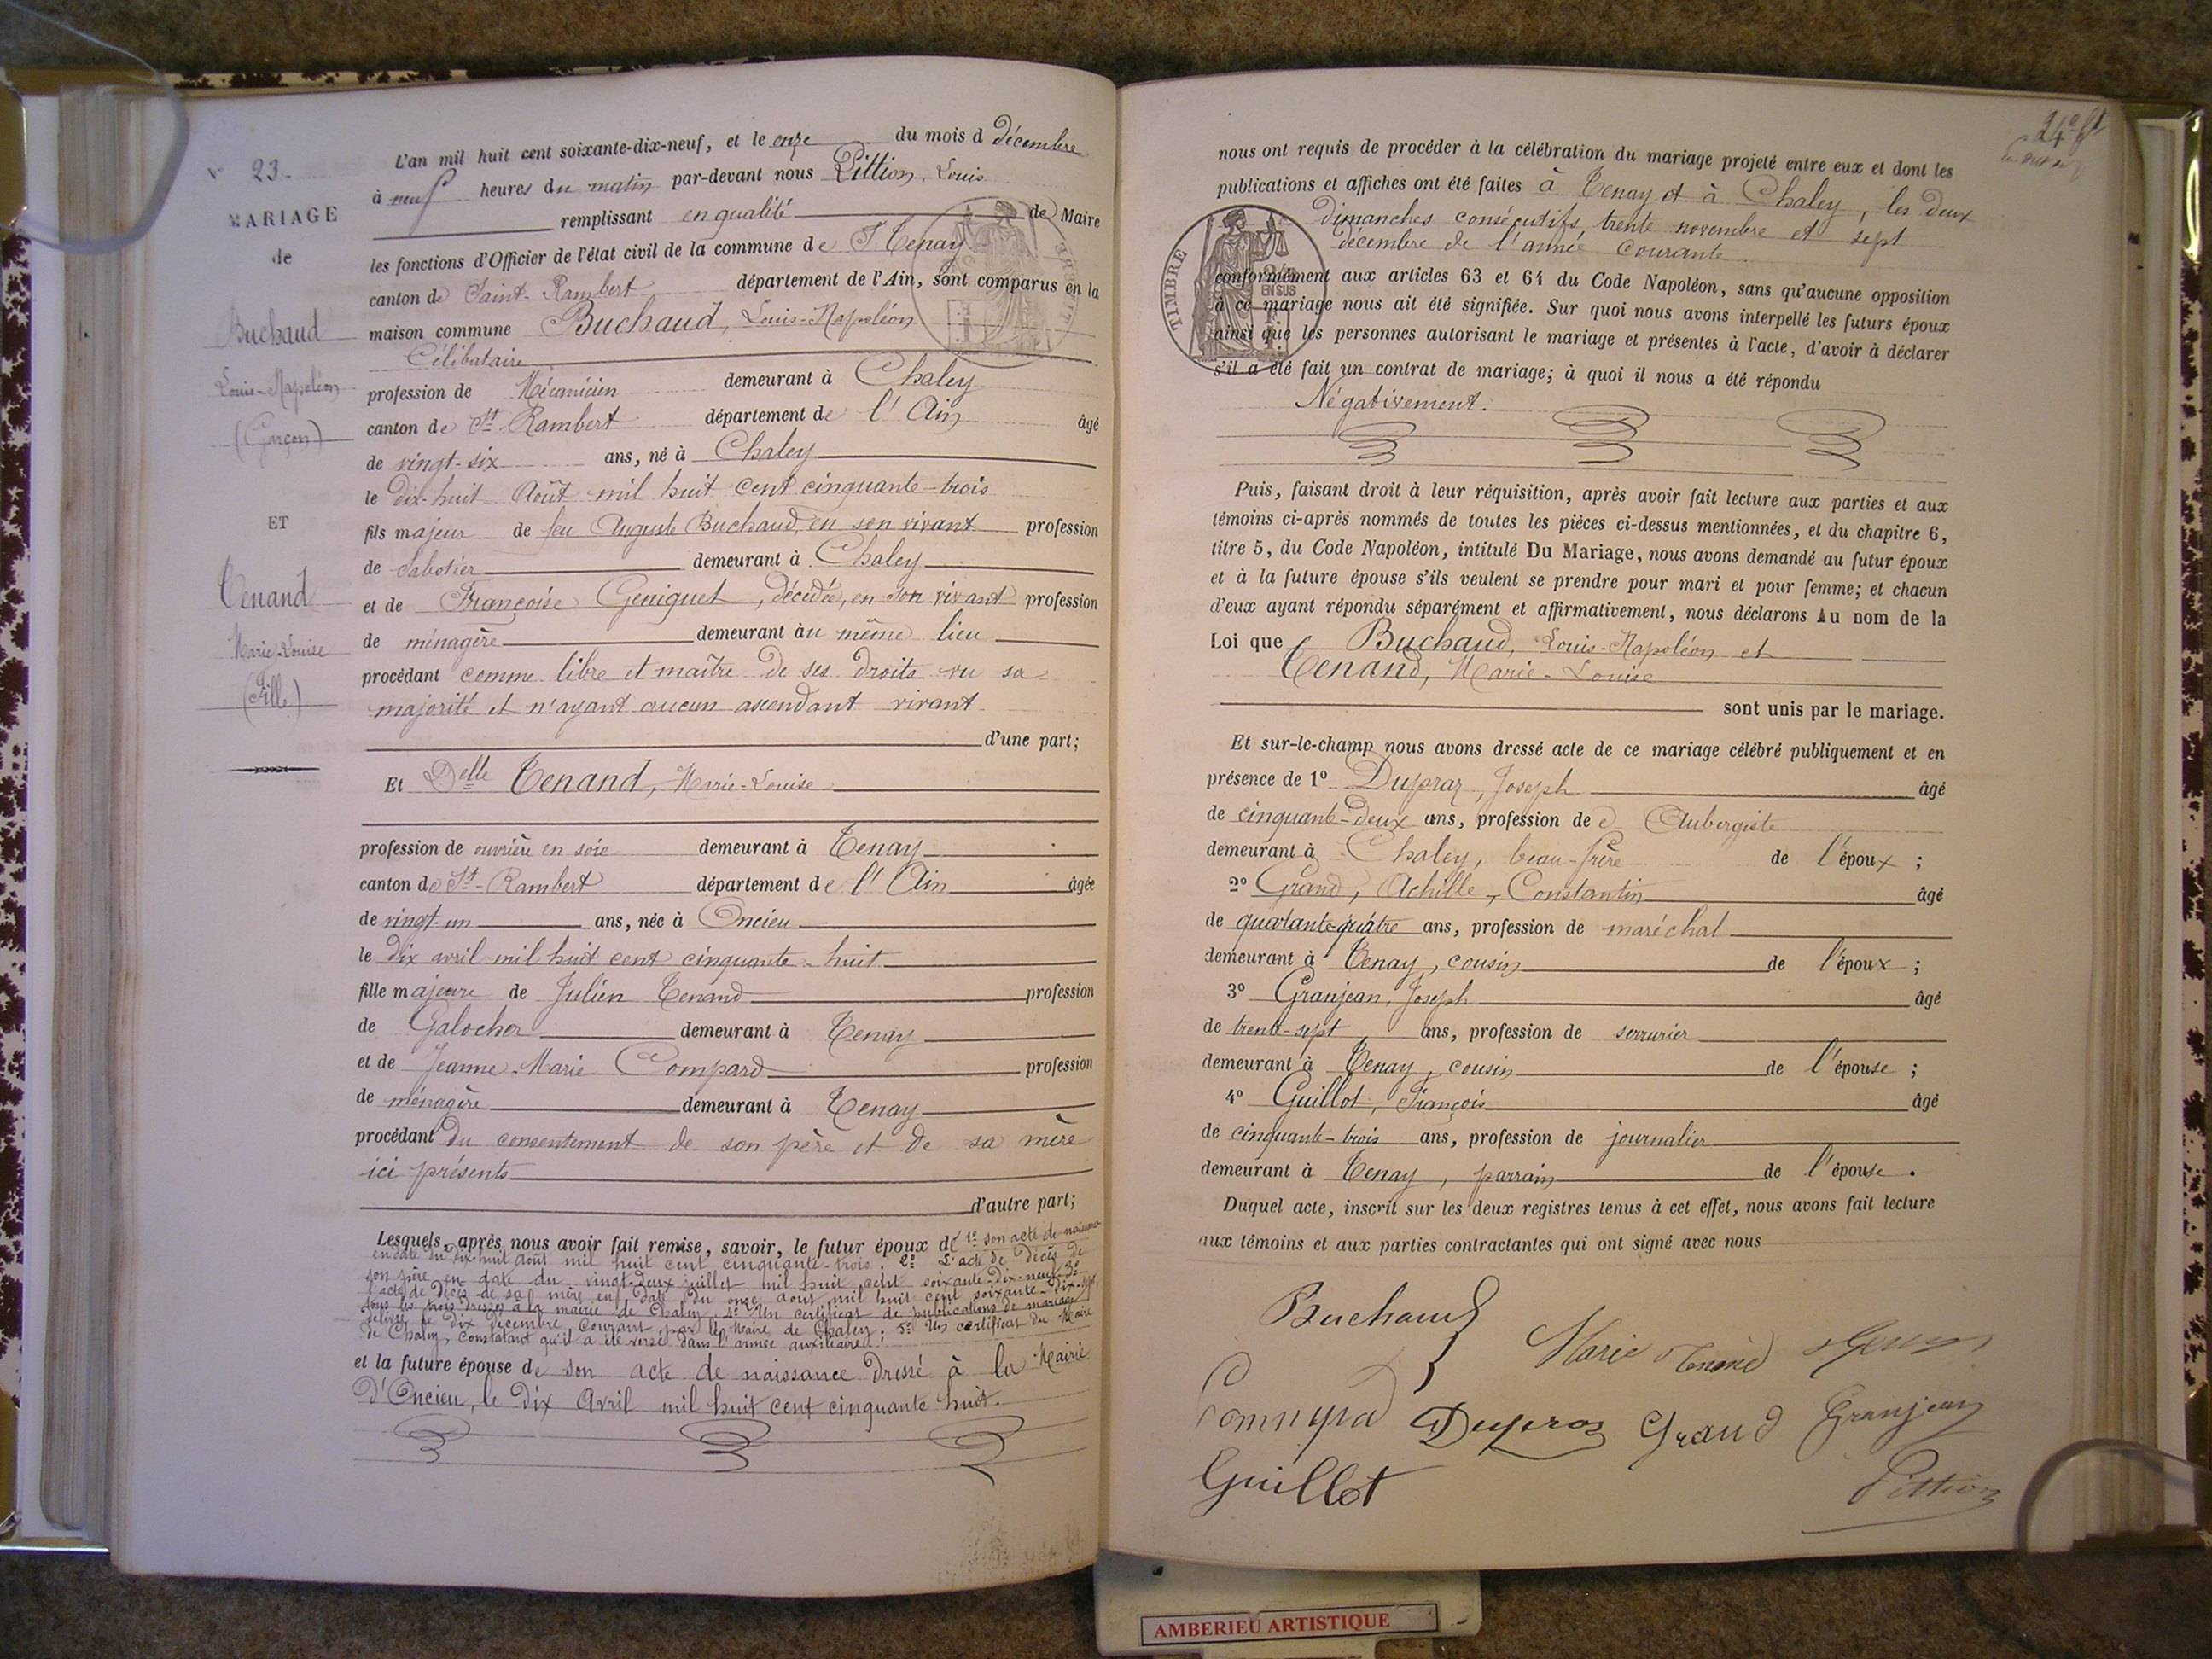 N° 23.
MARIAGE
de
Buchaud
Louis-Napoléon
(Garçon)
ET
Tenand
Marie-Louise
(Fille)
L'an mil huit cent soixante-dix-neuf, et le onze du mois d décembre
à neuf heures du matin par-devant nous Pittion, Louis
remplissant en qualité de Maire
les fonctions d'Officier de l'état civil de la commune de Tenay
canton de Saint-Rambert département de l'Ain, sont comparus en la
maison commune Buchaud, Louis-Napoléon
Célibataire
profession de Mécanicien demeurant à Chaley
canton de St-Rambert département de l'Ain âgé
de vingt-six ans, né à Chaley
le dix-huit Août mil huit cent cinquante-trois
fils majeur de feu Auguste Buchaud, en son vivant profession
de Sabotier demeurant à Chaley
et de Françoise Geniquet, décédée, en son vivant profession
de ménagère demeurant au même lieu
procédant comme libre et maître de ses droits vu sa
majorité et n'ayant aucun ascendant vivant
d'une part;
Et Delle Tenand, Marie-Louise
profession de ouvrière en soie demeurant à Tenay
canton de St-Rambert département de l'Ain âgée
de vingt-un ans, née à Oncieu
le dix avril mil huit cent cinquante-huit
fille majeure de Julien Tenand profession
de Galocher demeurant à Tenay
et de Jeanne-Marie Compard profession
de ménagère demeurant à Tenay
procédant du consentement de son père et de sa mère
ici présents
d'autre part;
Lesquels, après nous avoir fait remise, savoir, le futur époux de 1° son acte de naissance
en date du dix-huit Août mil huit cent cinquante-trois; 2° L'acte de décès de
son père en date du vingt-deux juillet mil huit cent soixante-dix-neuf 3°
l'acte de décès de sa mère en date du onze août mil huit cent soixante-dix-
tous les trois dressés à la mairie de Chaley, 4° Un certificat de publications de mariage
délivré le dix décembre courant par le Maire de Chaley; 5° Un certificat du Maire
de Chaley, constatant qu'il a été versé dans l'armée auxiliaire;
et la future épouse de son acte de naissance dressé à la Mairie
d'Oncieu, le dix Avril mil huit cent cinquante huit.
24e ft
nous ont requis de procéder à la célébration du mariage projeté entre eux et dont les
publications et affiches ont été faites à Tenay et à Chaley, les deux
dimanches consécutifs, trente novembre et sept
décembre de l'année courante
TIMBRE
2/10 EN SUS
conformément aux articles 63 et 64 du Code Napoléon, sans qu'aucune opposition
à ce mariage nous ait été signifiée. Sur quoi nous avons interpellé les futurs époux
ainsi que les personnes autorisant le mariage et présentes à l'acte, d'avoir à déclarer
s'il a été fait un contrat de mariage; à quoi il nous a été répondu
Négativement.
Puis, faisant droit à leur réquisition, après avoir fait lecture aux parties et aux
témoins ci-après nommés de toutes les pièces ci-dessus mentionnées, et du chapitre 6,
titre 5, du Code Napoléon, intitulé Du Mariage, nous avons demandé au futur époux
et à la future épouse s'ils veulent se prendre pour mari et pour femme; et chacun
d'eux ayant répondu séparément et affirmativement, nous déclarons Au nom de la
Loi que Buchaud, Louis-Napoléon et
Tenand, Marie-Louise
sont unis par le mariage.
Et sur-le-champ nous avons dressé acte de ce mariage célébré publiquement et en
présence de 1° Dupraz, Joseph âgé
de cinquante-deux ans, profession de d'Aubergiste
demeurant à Chaley, beau-frère de l'époux;
2° Grand, Achille, Constantin âgé
de quarante-quatre ans, profession de maréchal
demeurant à Tenay, cousin de l'époux;
3° Granjean, Joseph âgé
de trente-sept ans, profession de serrurier
demeurant à Tenay, cousin de l'épouse;
4° Guillot, François âgé
de cinquante-trois ans, profession de journalier
demeurant à Tenay, parrain de l'épouse.
Duquel acte, inscrit sur les deux registres tenus à cet effet, nous avons fait lecture
aux témoins et aux parties contractantes qui ont signé avec nous
Buchaud
Marie Tenand
Dupraz Grand Granjean
Guillot
Pittion
AMBERIEU ARTISTIQUE